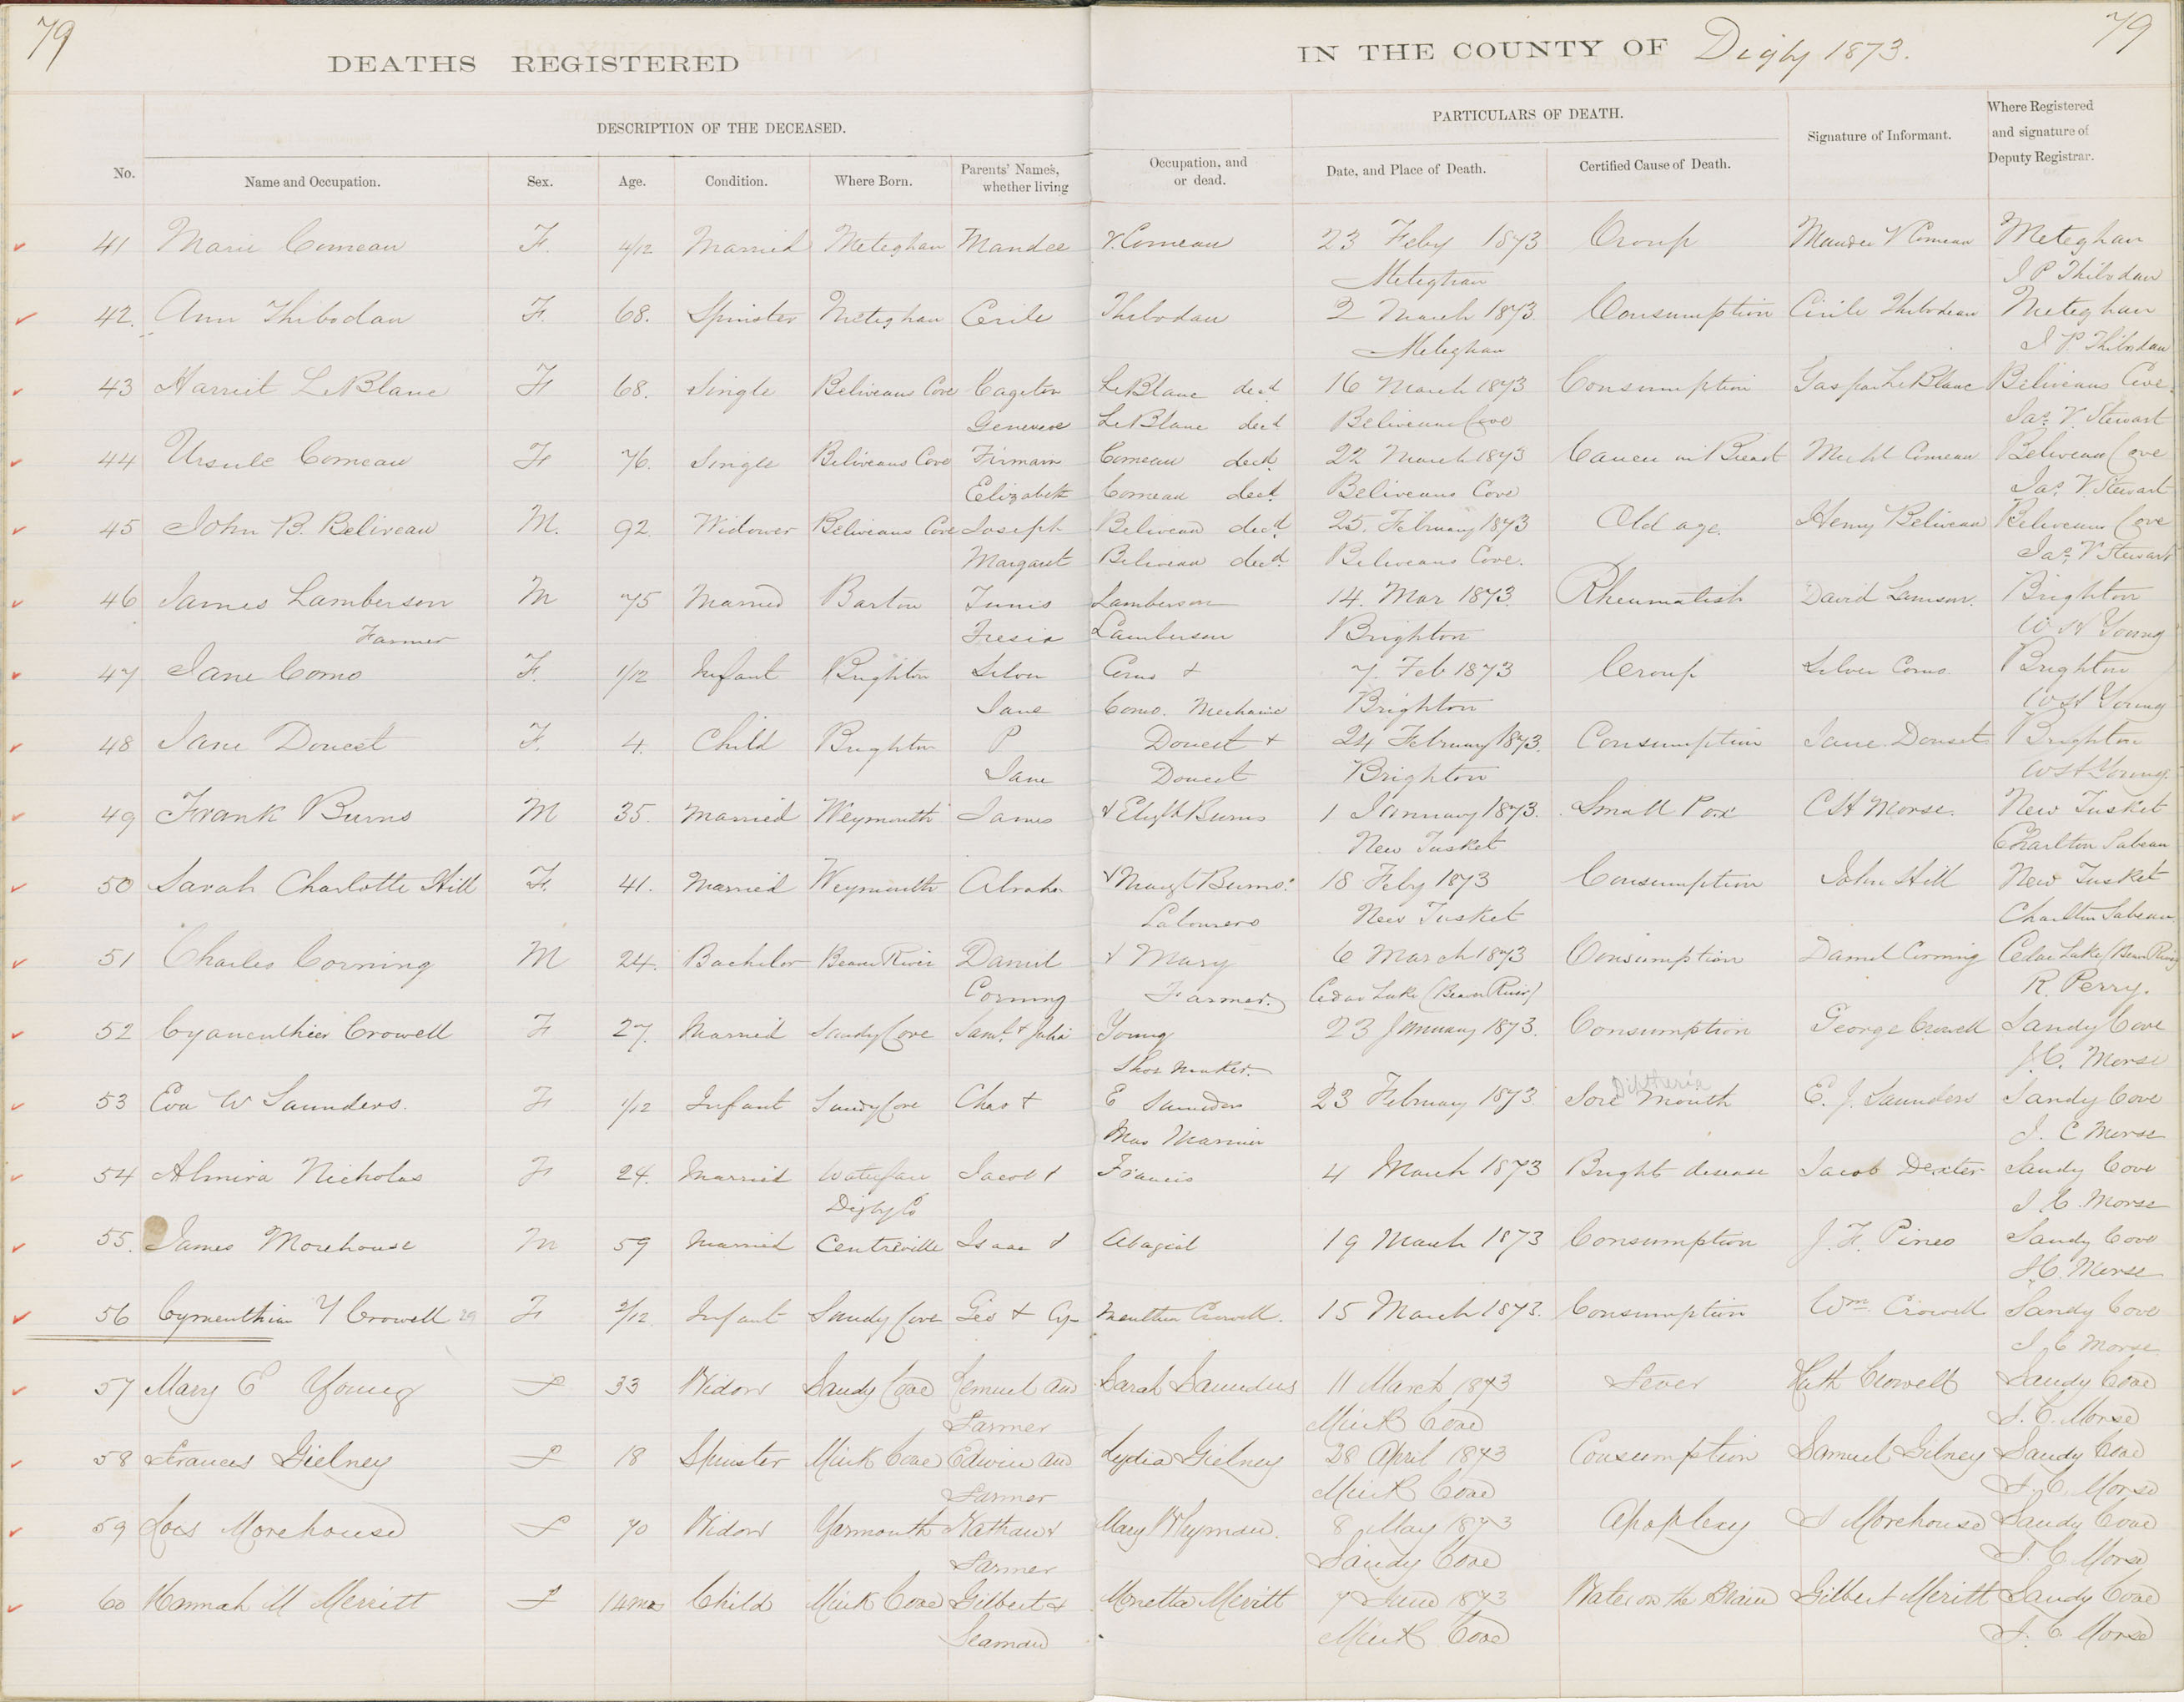 79
79
DEATHS REGISTERED IN THE COUNTY OF Digby 1873.
DESCRIPTION OF THE DECEASED.
PARTICULARS OF DEATH.
Signature of Informant.
Where Registered and signature of Deputy Registrar.
No. Name and Occupation. Sex. Age. Condition. Where Born. Parents' Names, whether living Occupation, and or dead. Date, and Place of Death. Certified Cause of Death.
41 Marie Comeau F. 4/12 Married Meteghan Mandee V. Comeau 23 Feby 1873 Croup Mandee V Comeau Meteghan
Meteghan J P Thibodau
42. Ann Thibodau F. 68. Spinster Meteghan Cirile Thibodau 2 March 1873 Consumption Cirile Thibodeau Meteghan
Meteghan J P Thibodau
43 Harriet LeBlanc F 68. Single Beliveaus Cove Cageton LeBlanc decd 16 March 1873 Consumption Gaspar LeBlanc Beliveaus Cove.
Genevieve LeBlanc decd Beliveau Cove Jas. V. Stewart
44 Ursule Comeau F 76. Single Beliveaus Cove Firmain Comeau decd. 22 March 1873 Cancer in Breast Michl Comeau Beliveau Cove
Elizabeth Comeau decd. Beliveaus Cove Jas. V. Stewart
45 John B. Beliveau M. 92. Widower Beliveaus Cove Joseph Beliveau decd. 25. February 1873 Old age. Henry Beliveau Beliveaus Cove
Margaret Beliveau decd. Beliveaus Cove. Jas. V Stewart
46 James Lamberson M 75 Married Barton Tunis Lamberson 14. Mar 1873. Rheumatish David Lamson. Brighton
Farmer Fresia Lamberson Brighton W H Young
47 Jane Como F. 1/12 Infant Brighton Silver Como & 7. Feb 1873 Croup Silver Como. Brighton
Jane Como. Mechanic Brighton W H Young
48 Jane Doucet F. 4. Child Brighton P Doucet & 24 February 1873. Consumption Jane Doucet Brighton
Jane Doucet Brighton W H Young.
49 Frank Burns M 35. Married Weymouth James & Elizth Burns 1 January 1873. Small Pox C H Morse. New Tusket
New Tusket Charlton Sabean
50 Sarah Charlotte Hill F. 41. Married Weymouth Abraha & Margt Burns. 18 Feby 1873 Consumption John Hill New Tusket
Labourers New Tusket Charlton Sabean
51 Charles Corning M 24. Bachelor Beaver River Daniel & Mary 6 March 1873 Consumption Daniel Corning Cedar Lake (Beaver River)
Corning Farmer. Cedar Lake (Beaver River) R. Perry.
52 Cyancuthier Crowell F 27. Married Sandy Cove Saml. & Julia Young 23 January 1873. Consumption George Crowell Sandy Cove
Shoe Maker. J. C. Morse
53 Eva W Saunders. F 1/12 Infant Sandy Cove Chas & E Saunders 23 February 1873. Sore Mouth E. J. Saunders Sandy Cove
Diptheria
Mas Mariner J. C Morse
54 Almira Nicholas F 24. Married Waterfare Jacob & Francis 4 March 1873 Bright disease Jacob Dexter Sandy Cove
Digby Co J. C. Morse
55. James Morehouse M 59 Married Centreville Isaac & Abagial 19 March 1873 Consumption J. F. Pineo Sandy Cove
J. C. Morse
56 Cymenthia Y Crowell 29 F 2/12. Infant Sandy Cove Geo & Cy- menthia Crowell. 15 March 1873. Consumption Wm. Crowell Sandy Cove
J. C Morse.
57 Mary E Young F 33 Widow Sandy Cove Lemuel and Sarah Saunders 11 March 1873 Fever Ruth Crowell Sandy Cove
Farmer Mink Cove J. C. Morse
58 Frances Gielney F 18 Spinster Mink Cove Edwin and Lydia Gielney 28 April 1873 Consumption Samuel Gilney Sandy Cove
Farmer Mink Cove J. C. Morse
59 Lois Morehouse F 70 Widow Yarmouth Nathan & Mary Weyman. 8 May 1873 Apoplexy J Morehouse Sandy Cove
Farmer Sandy Cove J. C. Morse
60 Hannah M Merritt F 14 mos Child Mink Cove Gilbert & Monetta Meritt 7 June 1873 Water on the Brain Gilbert Meritt Sandy Cove
Seaman Mink Cove J. C. Morse